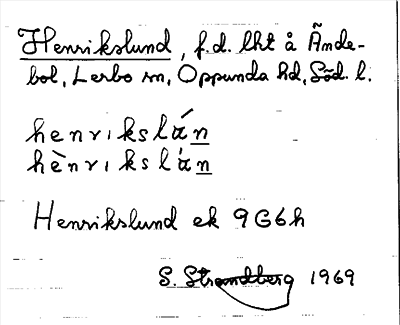 Henrikslund, f.d. lht å Ände-
bol, Lerbo sn, Oppunda hd, Söd. l.
henrikslán
hènrikslàn
Henrikslund ek 9G6h
S. Strandberg 1969